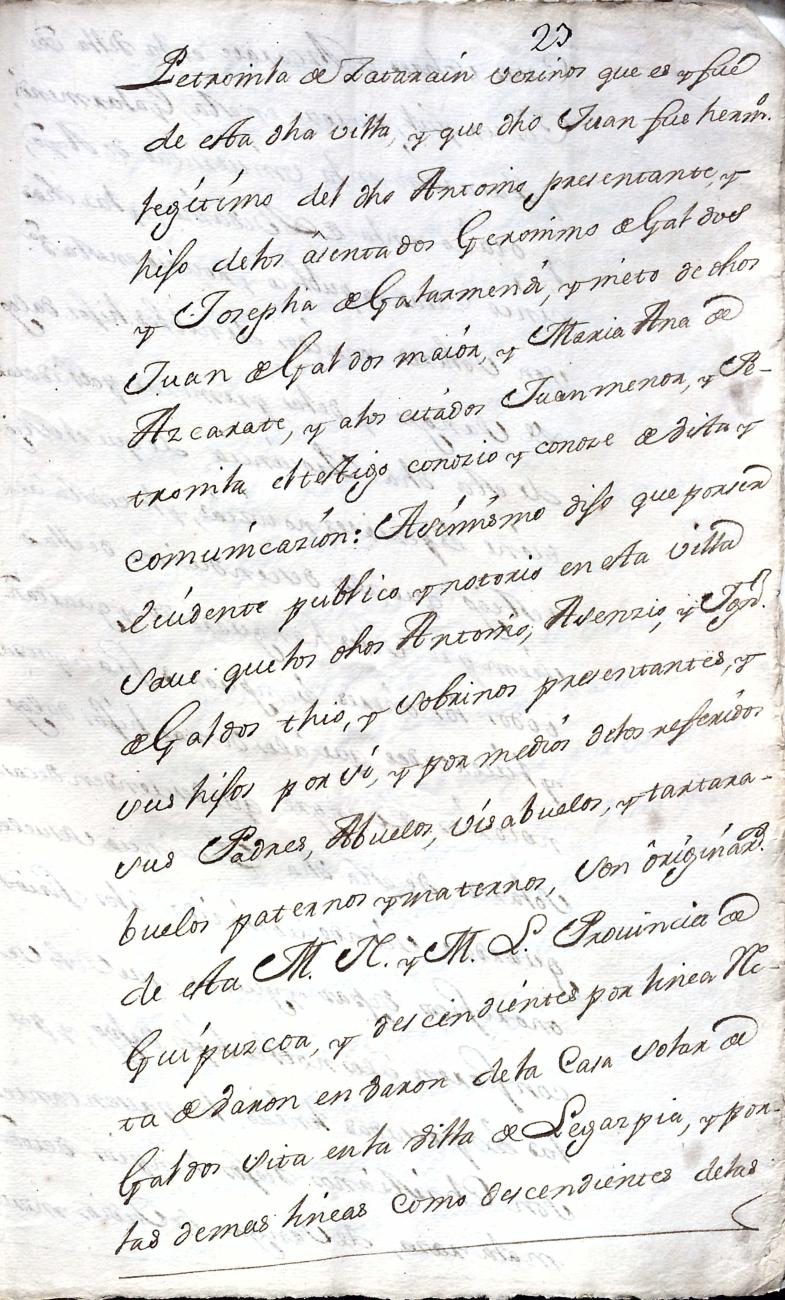 23
Petronila de Zatarain vezinos que es y fue
de esta dha villa, y que dho Juan fue hermo.
legitimo del dho Antonio presentante, y
hijo delos asentados Geronimo de Galdos
y Josepha de Galarmendi, y nieto de dhos
Juan de Galdos maior, y Maria Ana de
Azcarate, y alos citados Juan menor, y Pe-
tronila el testigo conozio y conoze de vista y
comunicazion: Asimismo dijo que por ser
evidente publico y notorio en esta villa
save que los dhos Antonio, Asenzio, y Ygn.
de Galdos thio, y sobrinos presentantes, y
sus hijos por si, y por medios delos referidos
sus Padres, Abuelos, visabuelos, y tartara-
buelos paternos y maternos, son originars.
de esta M. N. y M. L. Provincia de
Guipuzcoa, y descendientes por linea Re-
ta de Varon en Varon de la Casa solar de
Galdos sita en la Villa de Legazpia, y por
las demas lineas como descendientes de las